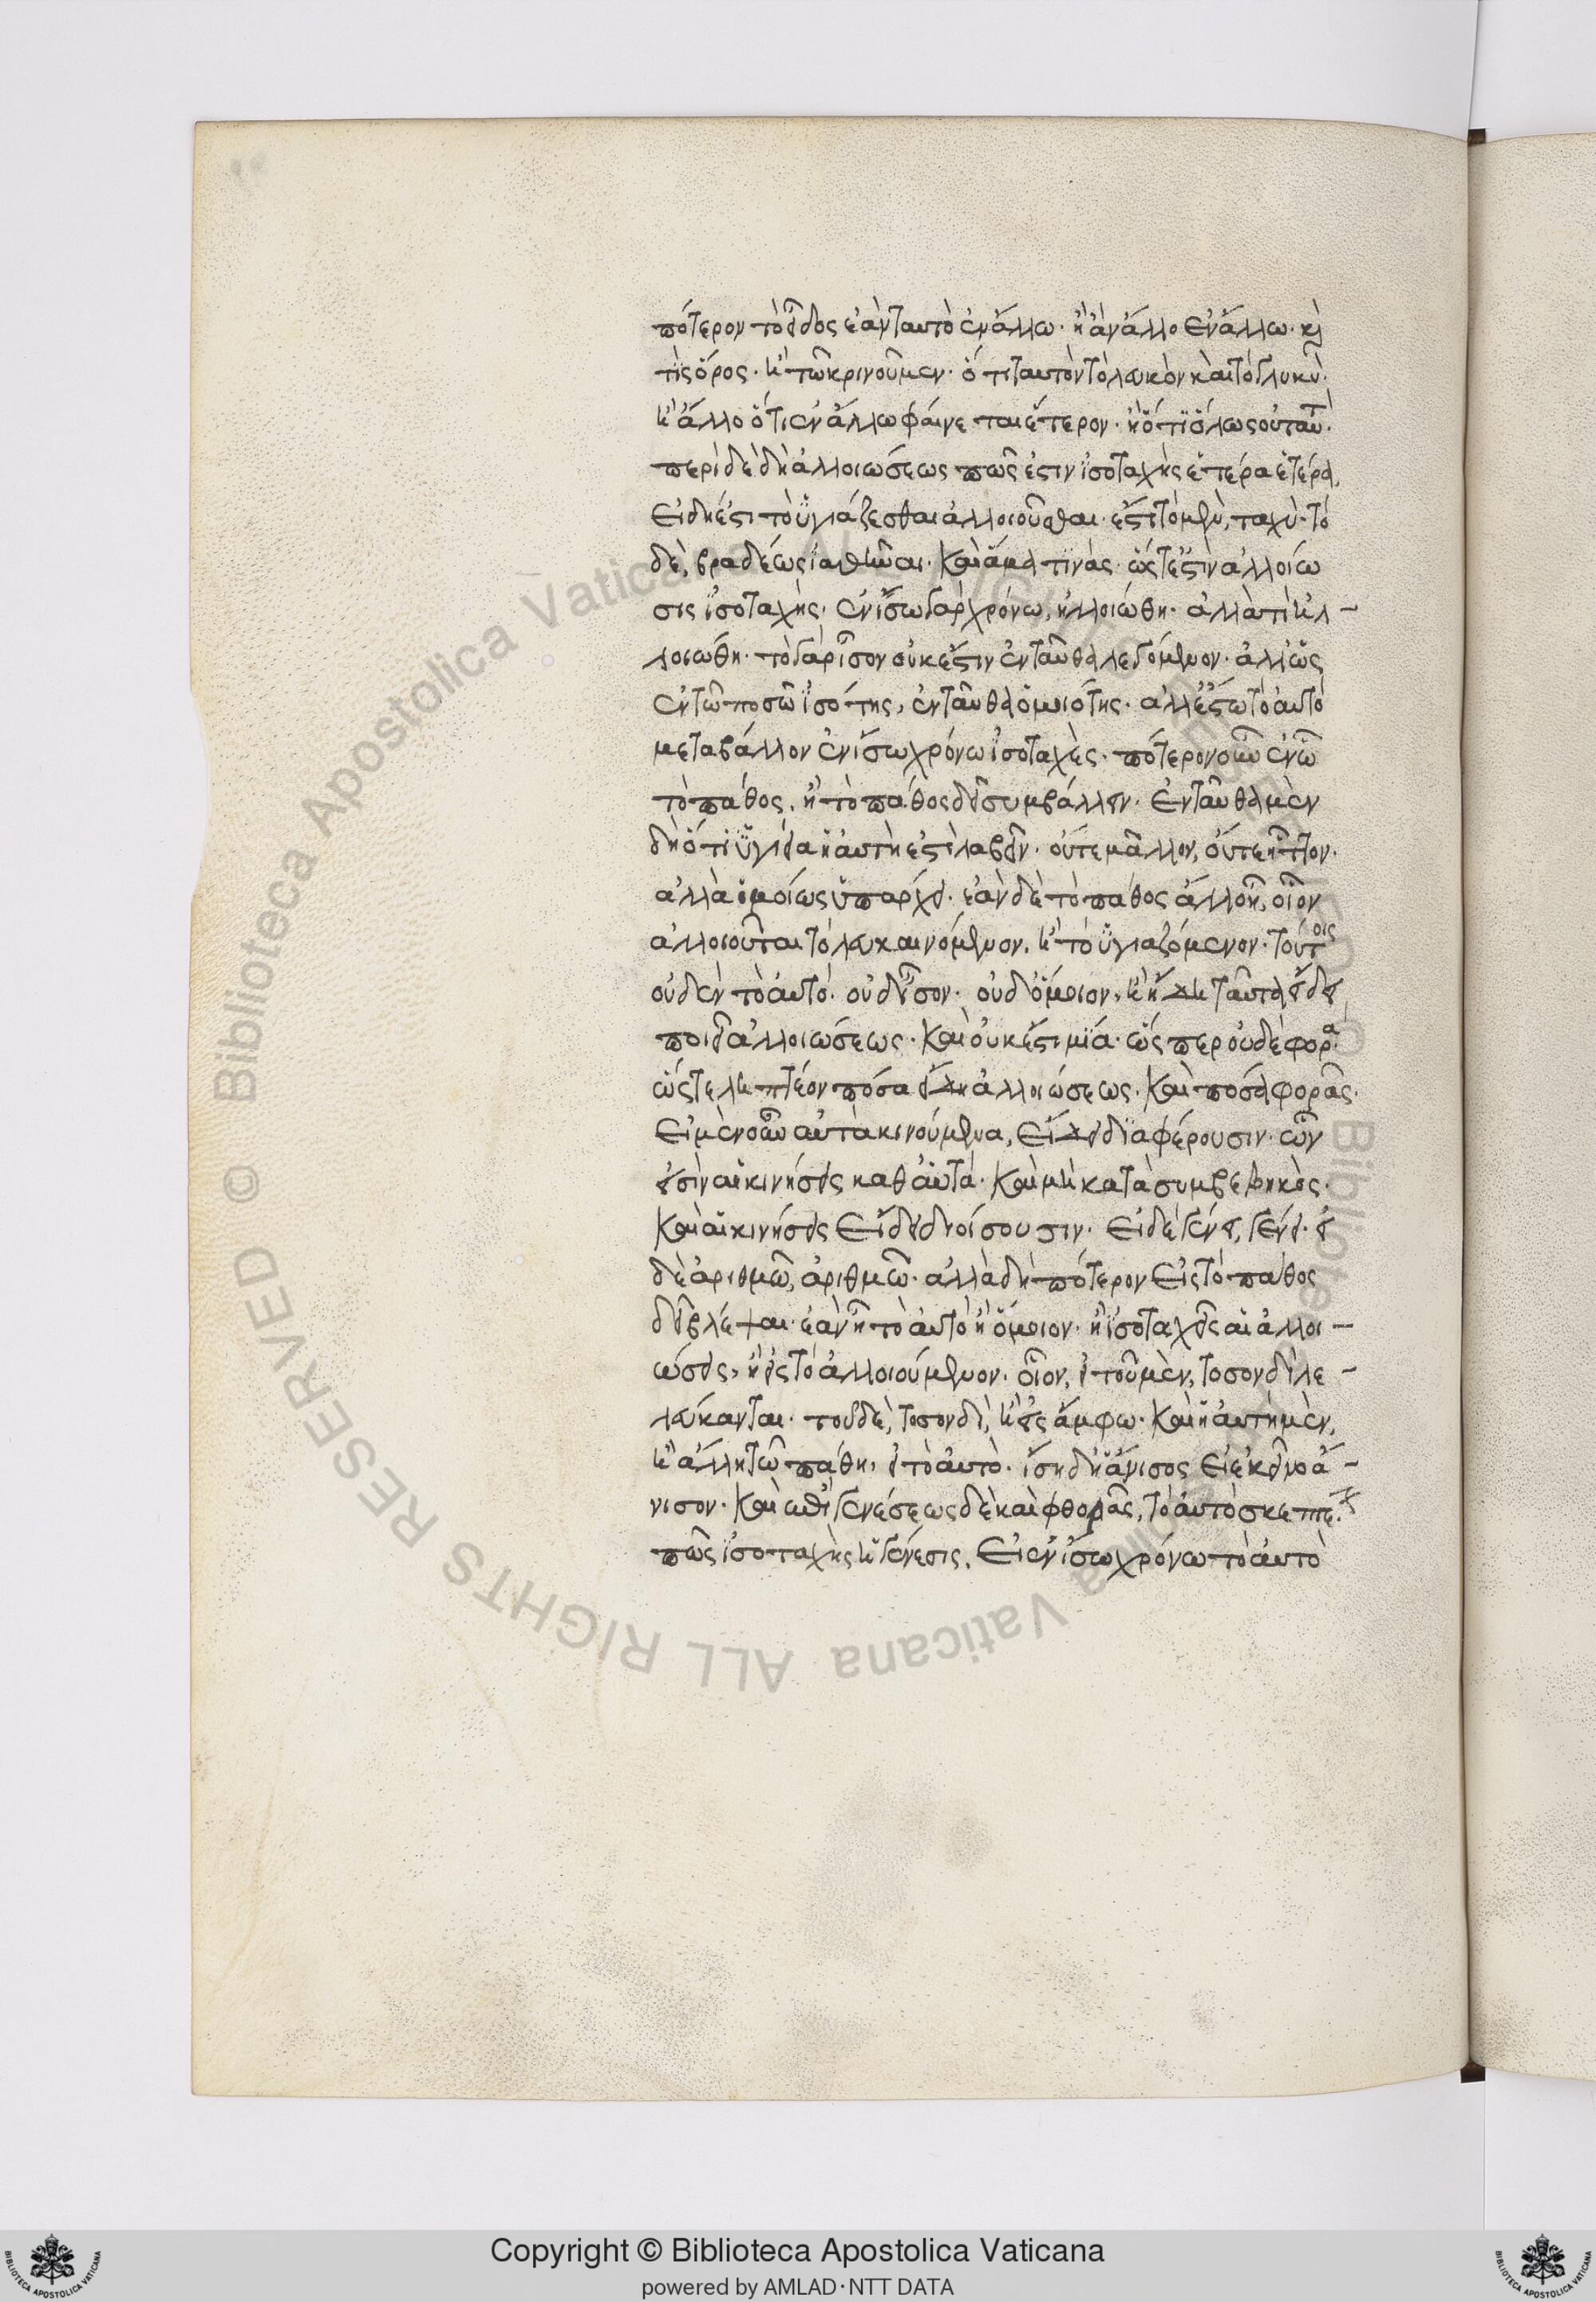 πότερον τὸ εἶδος ἐὰν ταυτὸ ἐν ἄλλω· ἢ ἂν ἄλλο ἐν ἄλλω· καὶ
τίς ὅρος· ἢ τῶ κρινοῦμεν· ὅτι ταυτὸν τὸ λευκὸν καὶ τὸ γλυκὺ·
ἢ ἄλλο ὅτι ἐν ἄλλω φαίνεται ἕτερον· ἢ ὅτι ὅλως οὐ ταυτὸ·
περὶ δὲ δὴ ἀλλοιώσεως πῶς ἐστιν ἰσοταχὴς ἑτέρα ἑτέρα,
εἰ δή ἐστι τὸ ὑγιάζεσθαι ἀλλοιοῦσθαι· ἔστι τὸ μὲν, ταχὺ· τὸ
δὲ, βραδέως ἰαθῆναι· καὶ ἅμα τινὰς· ὥστ' ἔστιν ἀλλοίω
σις ἰσοταχής· ἐν ἴσω γὰρ χρόνω, ἠλλοιώθη· ἀλλὰ τί ἠλ-
λοιώθη· τὸ γὰρ ἴσον οὐκ ἔστιν ἐνταῦθα λεγόμενον· ἀλλ' ὡς
ἐν τῶ ποσῶ ἰσότης, ἐνταῦθα ὁμοιότης· ἀλλ' ἔστω τὸ αὐτὸ
μεταβάλλον ἐν ἴσω χρόνω ἰσοταχὲς· πότερον οὖν ἐν ὧ
τὸ πάθος, ἢ τὸ πάθος δεῖ συμβάλλειν· ἐνταῦθα μὲν
δὴ ὅτι ὑγίεια ἡ αὐτὴ ἐστὶ λαβεῖν· οὔτε μᾶλλον, οὔτε ἧττον·
ἀλλὰ ὁμοίως ὑπάρχει· ἐὰν δὲ τὸ πάθος ἄλλο ἦ, οἷον
ἀλλοιοῦται τὸ λευκαινόμενον, ἢ τὸ ὑγιαζόμενον· τούτοις
οὐδὲν τὸ αὐτό· οὐδ' ἴσον· οὐδ' ὅμοιον, ἢ ἤδη ταῦτα εἴδει
ποιεῖ ἀλλοιώσεως· καὶ οὐκ ἔστι μία· ὥσπερ οὐδὲ φορὰ·
ὥστε ληπτέον πόσα εἴδη ἀλλοιώσεως· καὶ πόσα φορᾶς·
εἰ μὲν οὖν αὐτὰ κινούμενα, εἴδει διαφέρουσιν· ὧν
εἰσὶν αἱ κινήσεις καθ' αὑτὰ· καὶ μὴ κατὰ συμβεβηκὸς·
καὶ αἱ κινήσεις εἴδει διοίσουσιν· εἰ δὲ γένει, γένει· εἰ
δὲ ἀριθμῶ, ἀριθμῶ· ἀλλὰ δὴ πότερον εἰς τὸ πάθος
δεῖ βλέψαι· ἐὰν ἦ τὸ αὐτὸ ἢ ὅμοιον· ἢ ἰσοταχεῖς αἱ ἀλλοι-
ώσεις, ἢ εἰς τὸ ἀλλοιούμενον· οἷον, εἰ τοῦ μὲν, τοσονδὶ λε-
λεύκανται· τοῦ δὲ, τοσονδὶ, ἢ εἰς ἄμφω· καὶ ἡ αὐτὴ μὲν,
ἢ ἄλλη τῶ πάθει, εἰ τὸ αὐτὸ· ἴση δ' ἢ ἄνισος εἰ ἐκεῖνο ἄ-
νισον· καὶ ἐπὶ γενέσεως δὲ καὶ φθορᾶς, τὸ αὐτὸ σκεπτέον
πῶς ἰσοταχὴς ἡ γένεσις, εἰ ἐν ἴσω χρόνω τὸ αὐτὸ
Copyright © Biblioteca Apostolica Vaticana
powered by AMLAD·NTT DATA